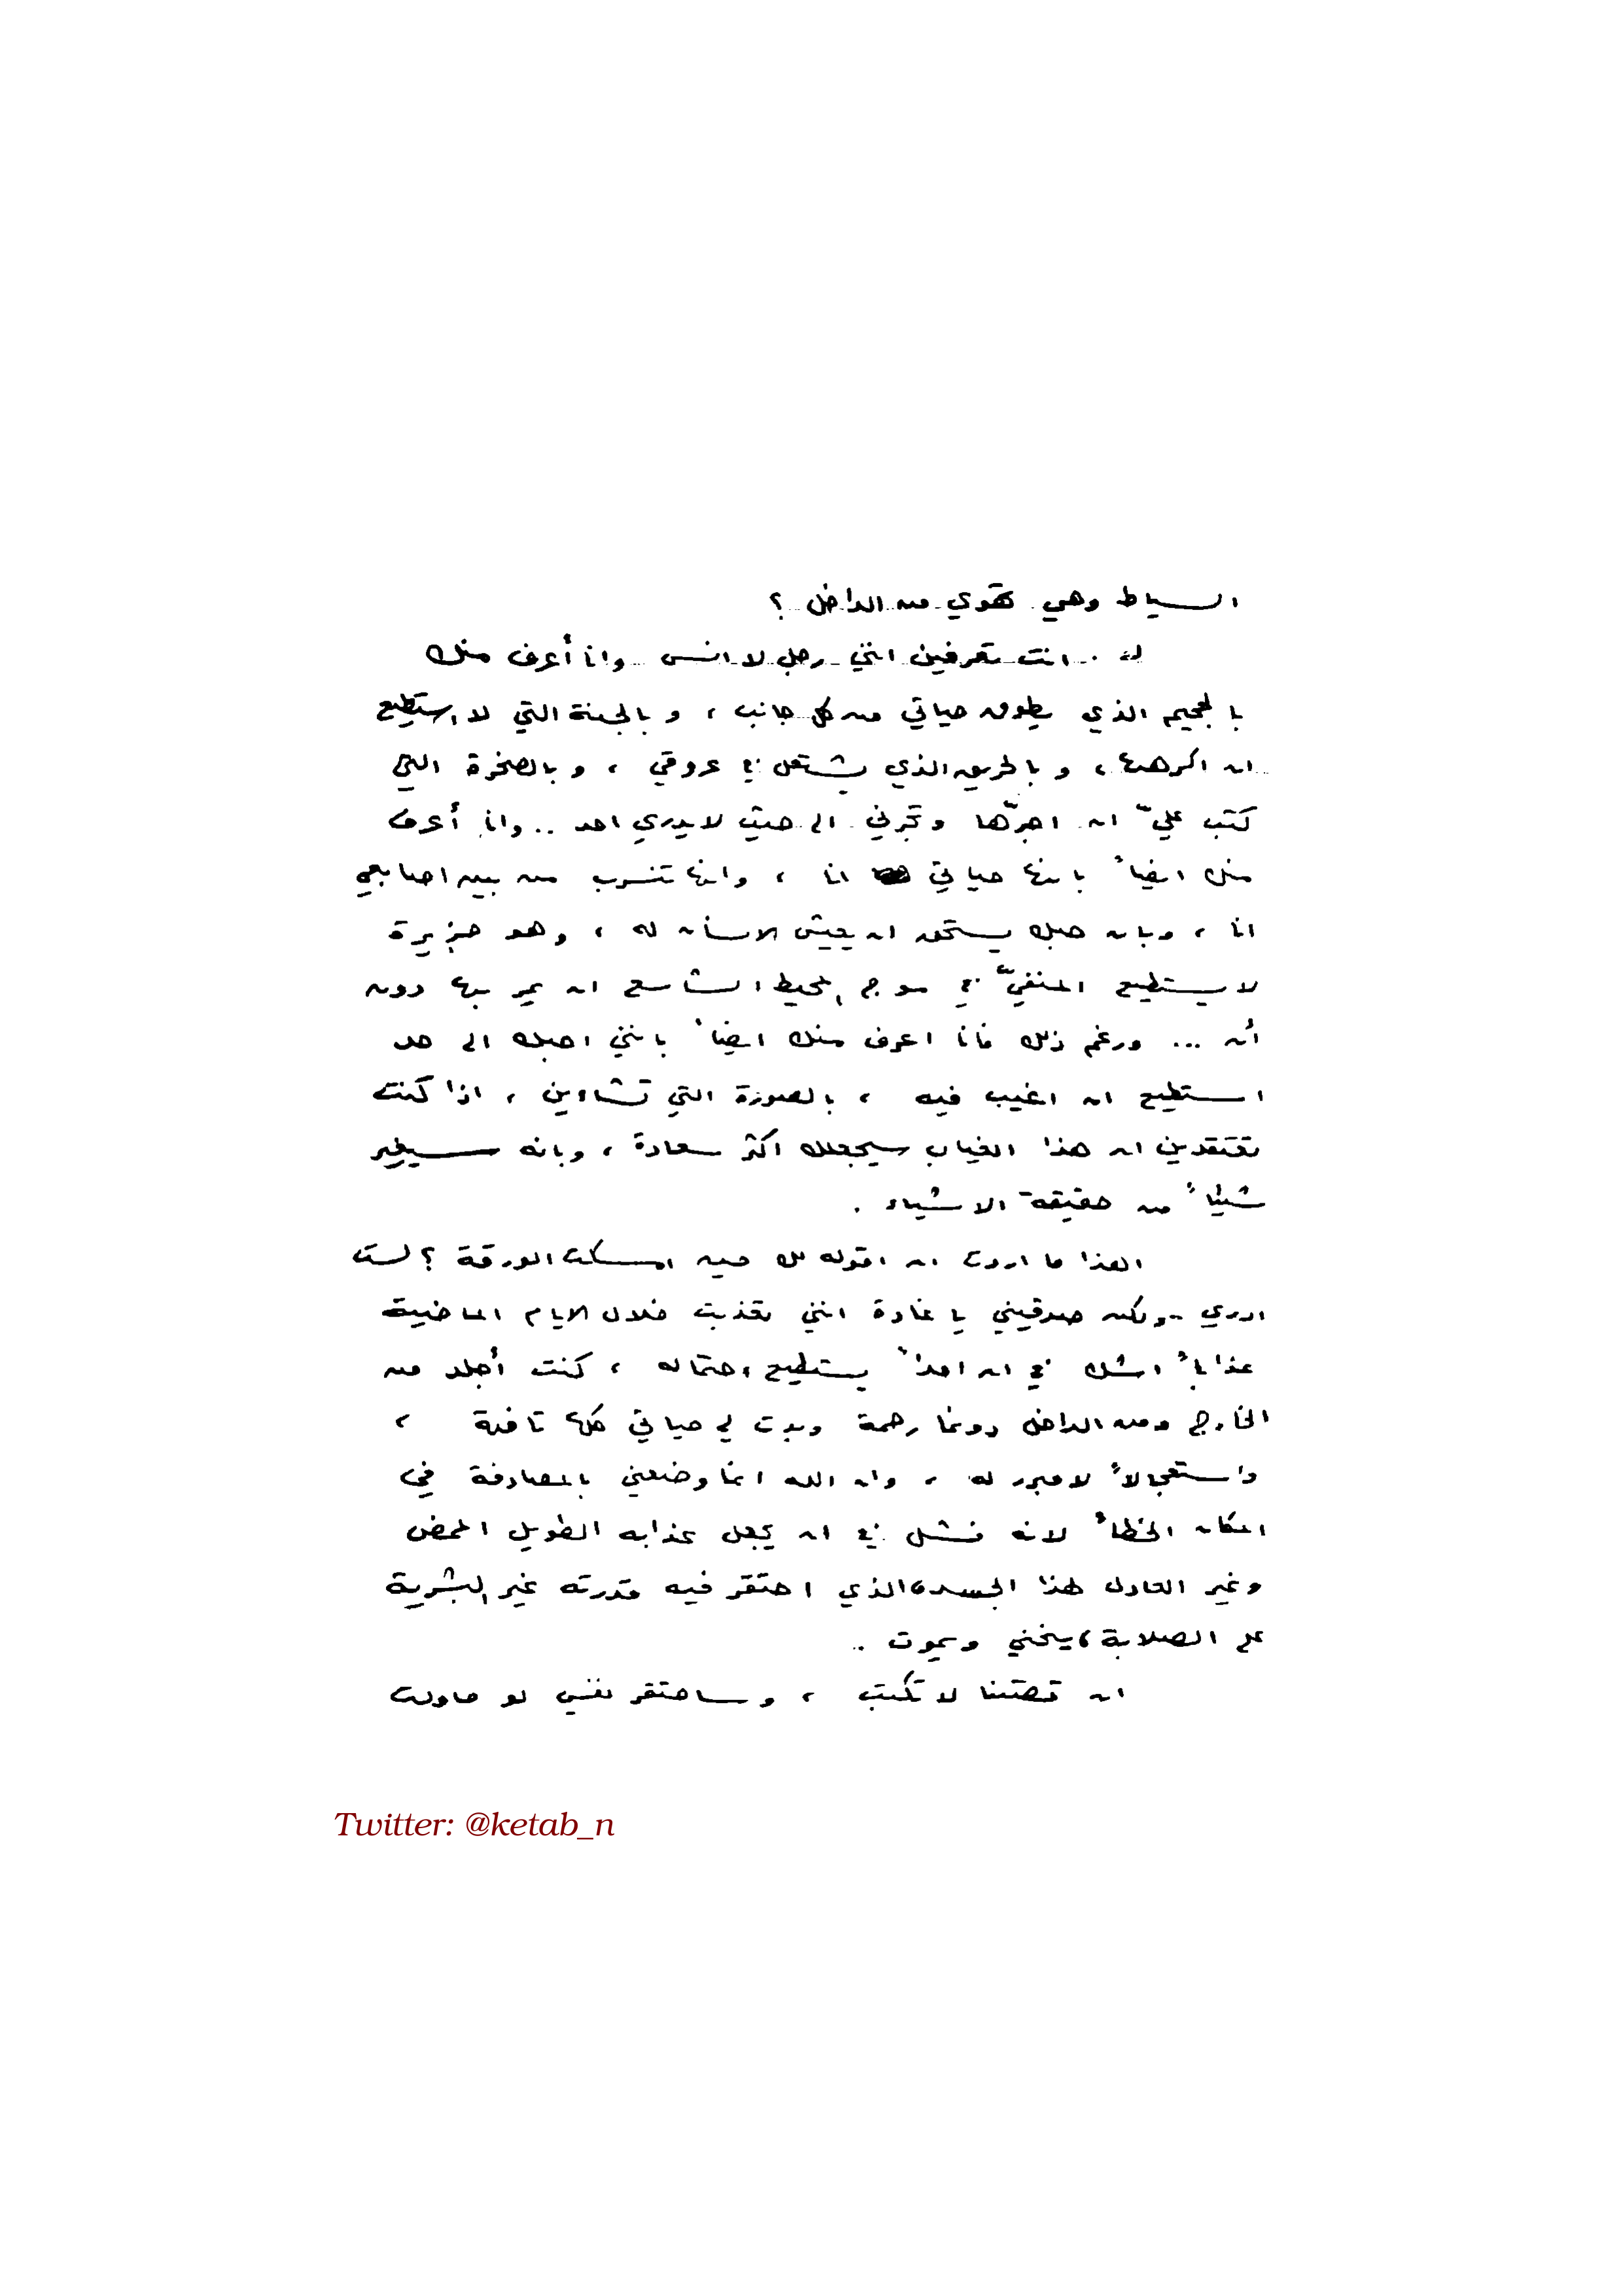 السياط وهي تهوي من الداخل ؟
لا . انت تعرفين انني رجل لا انسى وانا أعرف منك
بالجحيم الذي يطوق حياتي من كل جانب ، وبالجنة التي لا استطيع
ان اكرهها ، وبالحريق الذي يشتعل في عروقي ، وبالصخرة التي
كتب عليّ ان اجرّها وتجرني الى حيث لا يدري احد .. وانا أعرف
منك ايضاً بانها حياتي انا ، وانها تنسرب من بين اصابعي
انا ، وبان حبك يستحق ان يعيش الانسان له ، وهو جزيرة
لا يستطيع المنفيّ في موج المحيط الشاسع ان يمر بها دون
أن ... ورغم ذلك فأنا اعرف منك ايضاً بانني احبك الى حد
استطيع ان اغيب فيه ، بالصورة التي تشائين ، اذا كنت
تعتقدين ان هذا الغياب سيجعلك اكثر سعادة ، وبانه سيغير
شيئاً من حقيقة الاشياء .
اهذا ما اردت ان اقوله لك حين امسكت الورقة ؟ لست
ادري .. ولكن صدقيني يا غادة انني تعذبت خلال الايام الماضية
عذاباً اشك في ان احداً يستطيع احتماله ، كنت أجلد من
الخارج ومن الداخل دونما رحمة وبدت لي حياتي كلها تافهة ،
واستعجالاً لا مبرر له ، وان الله انما وضعني بالمصادفة في
المكان الخطأ لانه فشل في ان يجعل عذابه الطويل الممض
وغير العادل لهذا الجسد ، الذي احتقر فيه قدرته غير البشرية
على الصلابة ، ينحني ويموت ..
ان قصتنا لا تكتب ، وساحتقر نفسي لو حاولت
Twitter: @ketab_n